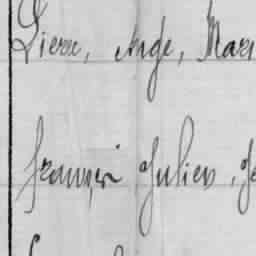 Pierre, Ange, Mari
françois Julien, Je